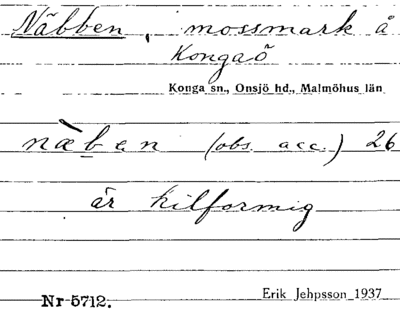 Näbben, mossmark å
Kongaö
Konga sn., Onsjö hd., Malmöhus län
næ̀ben (obs. acc.) 26
är kilformig
Nr 5712.
Erik Jehpsson 1937